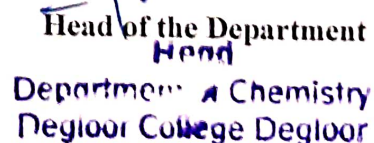 Head of the Department
Head
Department Chemistry
Degloor College Degloor